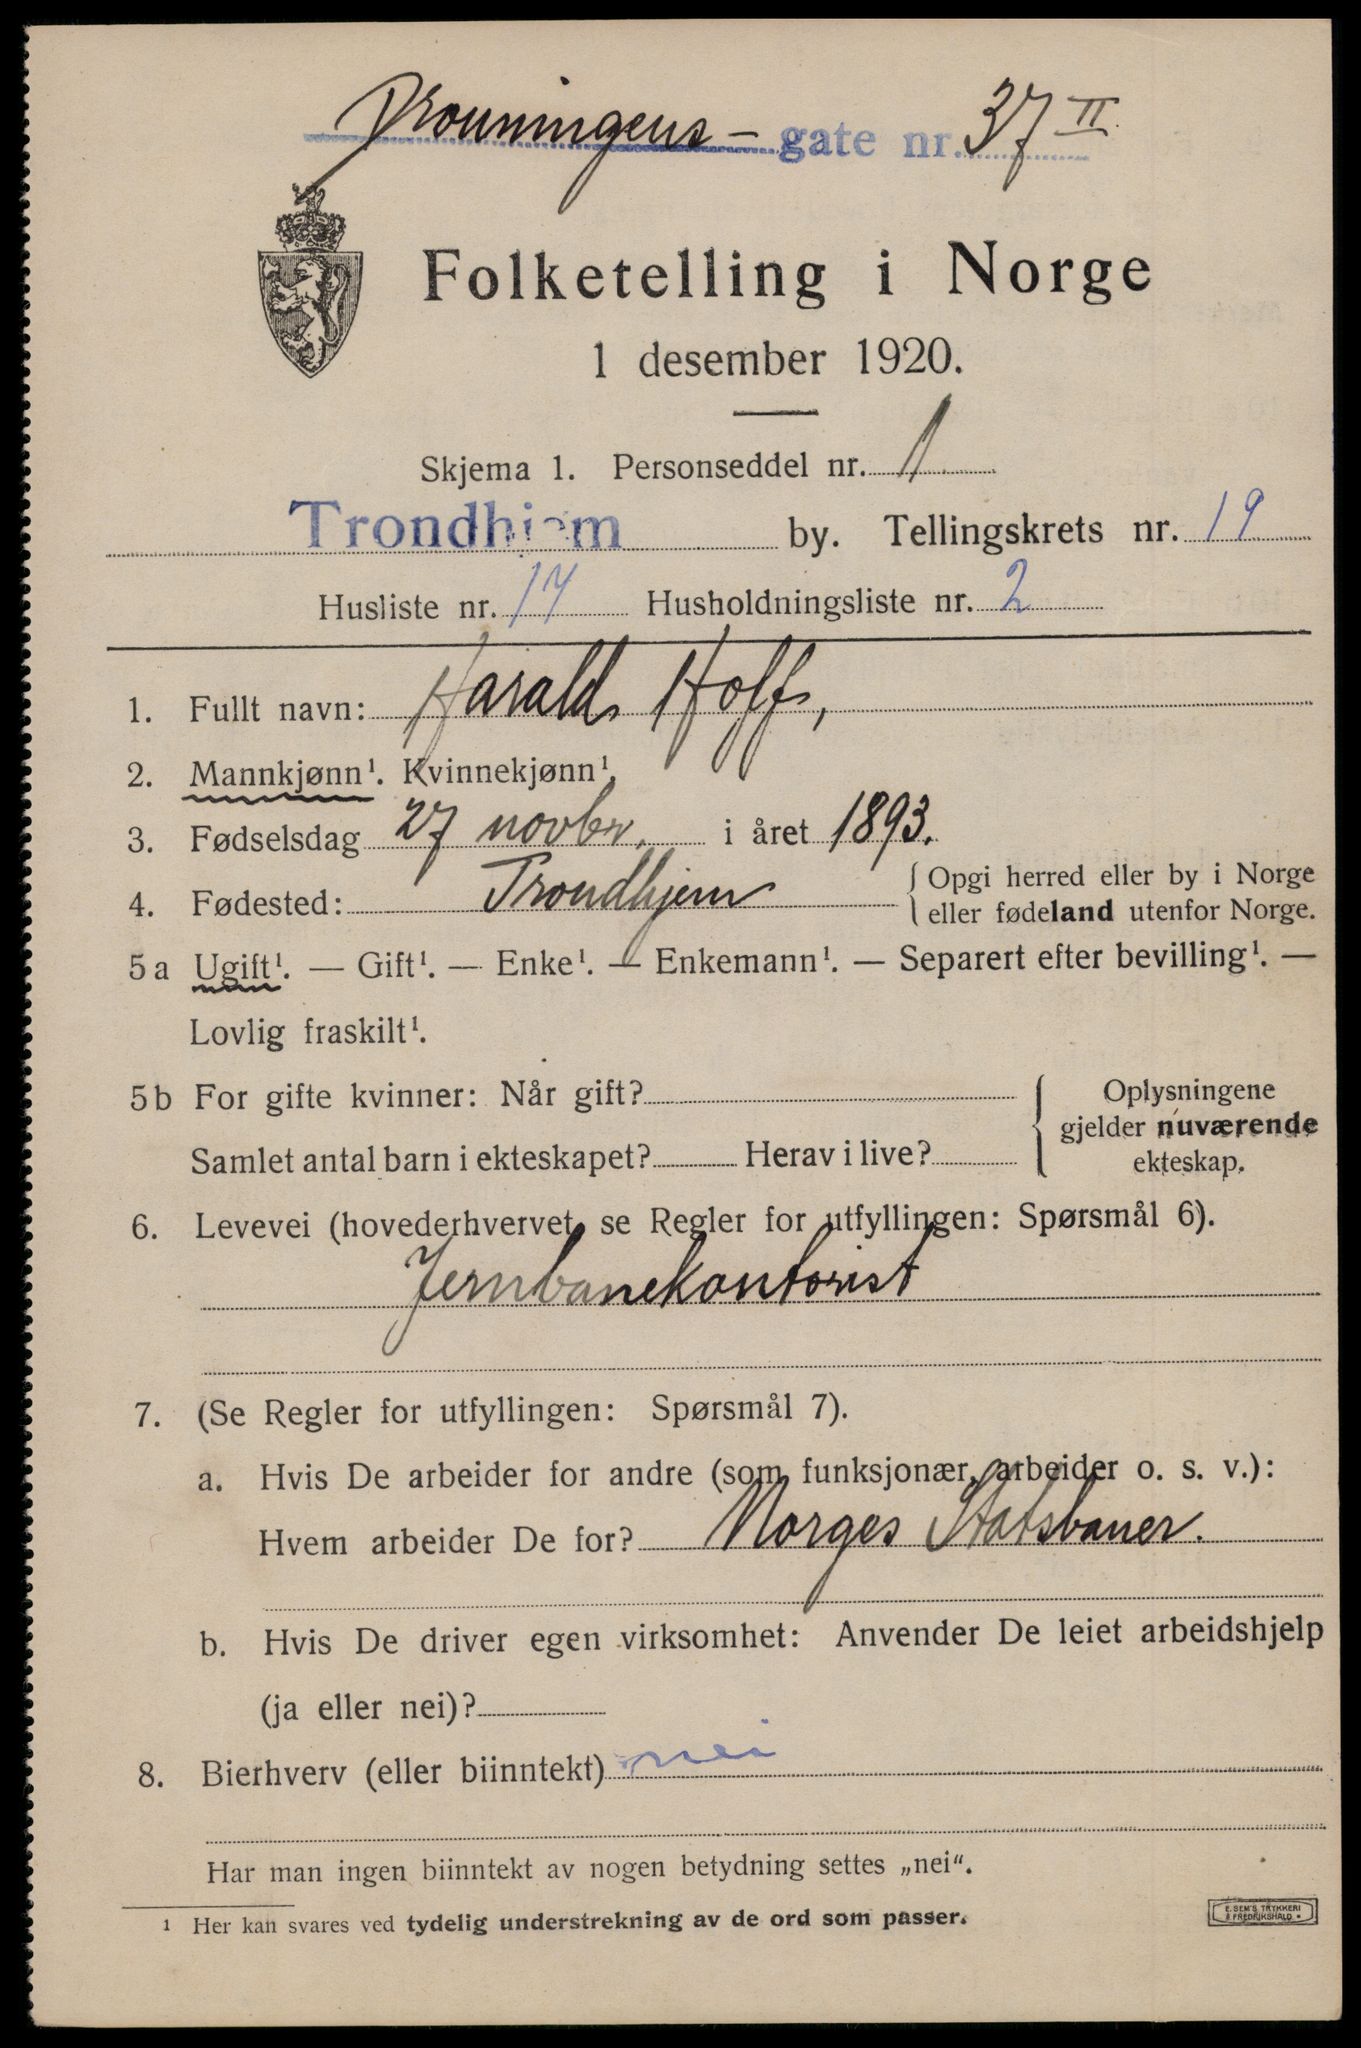 Dronningens - gate nr. 37 II
Folketelling i Norge
1 desember 1920.
Skjema 1. Personseddel nr. 1
Trondhjem by. Tellingskrets nr. 19
Husliste nr. 17 Husholdningsliste nr. 2
1. Fullt navn: Harald Hoff,
2. Mannkjønn¹. Kvinnekjønn¹.
3. Fødselsdag 27 novbr. i året 1893.
4. Fødested: Trondhjem { Opgi herred eller by i Norge
eller fødeland utenfor Norge.
5a Ugift¹. — Gift¹. — Enke¹. — Enkemann¹. — Separert efter bevilling¹. —
Lovlig fraskilt¹.
5b For gifte kvinner: Når gift?
Samlet antal barn i ekteskapet? Herav i live?
{ Oplysningene
gjelder nuværende
ekteskap.
6. Levevei (hovederhvervet, se Regler for utfyllingen: Spørsmål 6).
Jernbanekontorist
7. (Se Regler for utfyllingen: Spørsmål 7).
a. Hvis De arbeider for andre (som funksjonær, arbeider o. s. v.):
Hvem arbeider De for? Norges Statsbaner.
b. Hvis De driver egen virksomhet: Anvender De leiet arbeidshjelp
(ja eller nei)?
8. Bierhverv (eller biinntekt) nei
Har man ingen biinntekt av nogen betydning settes „nei“.
¹ Her kan svares ved tydelig understrekning av de ord som passer.
E. SEM'S TRYKKERI
FREDRIKSHALD